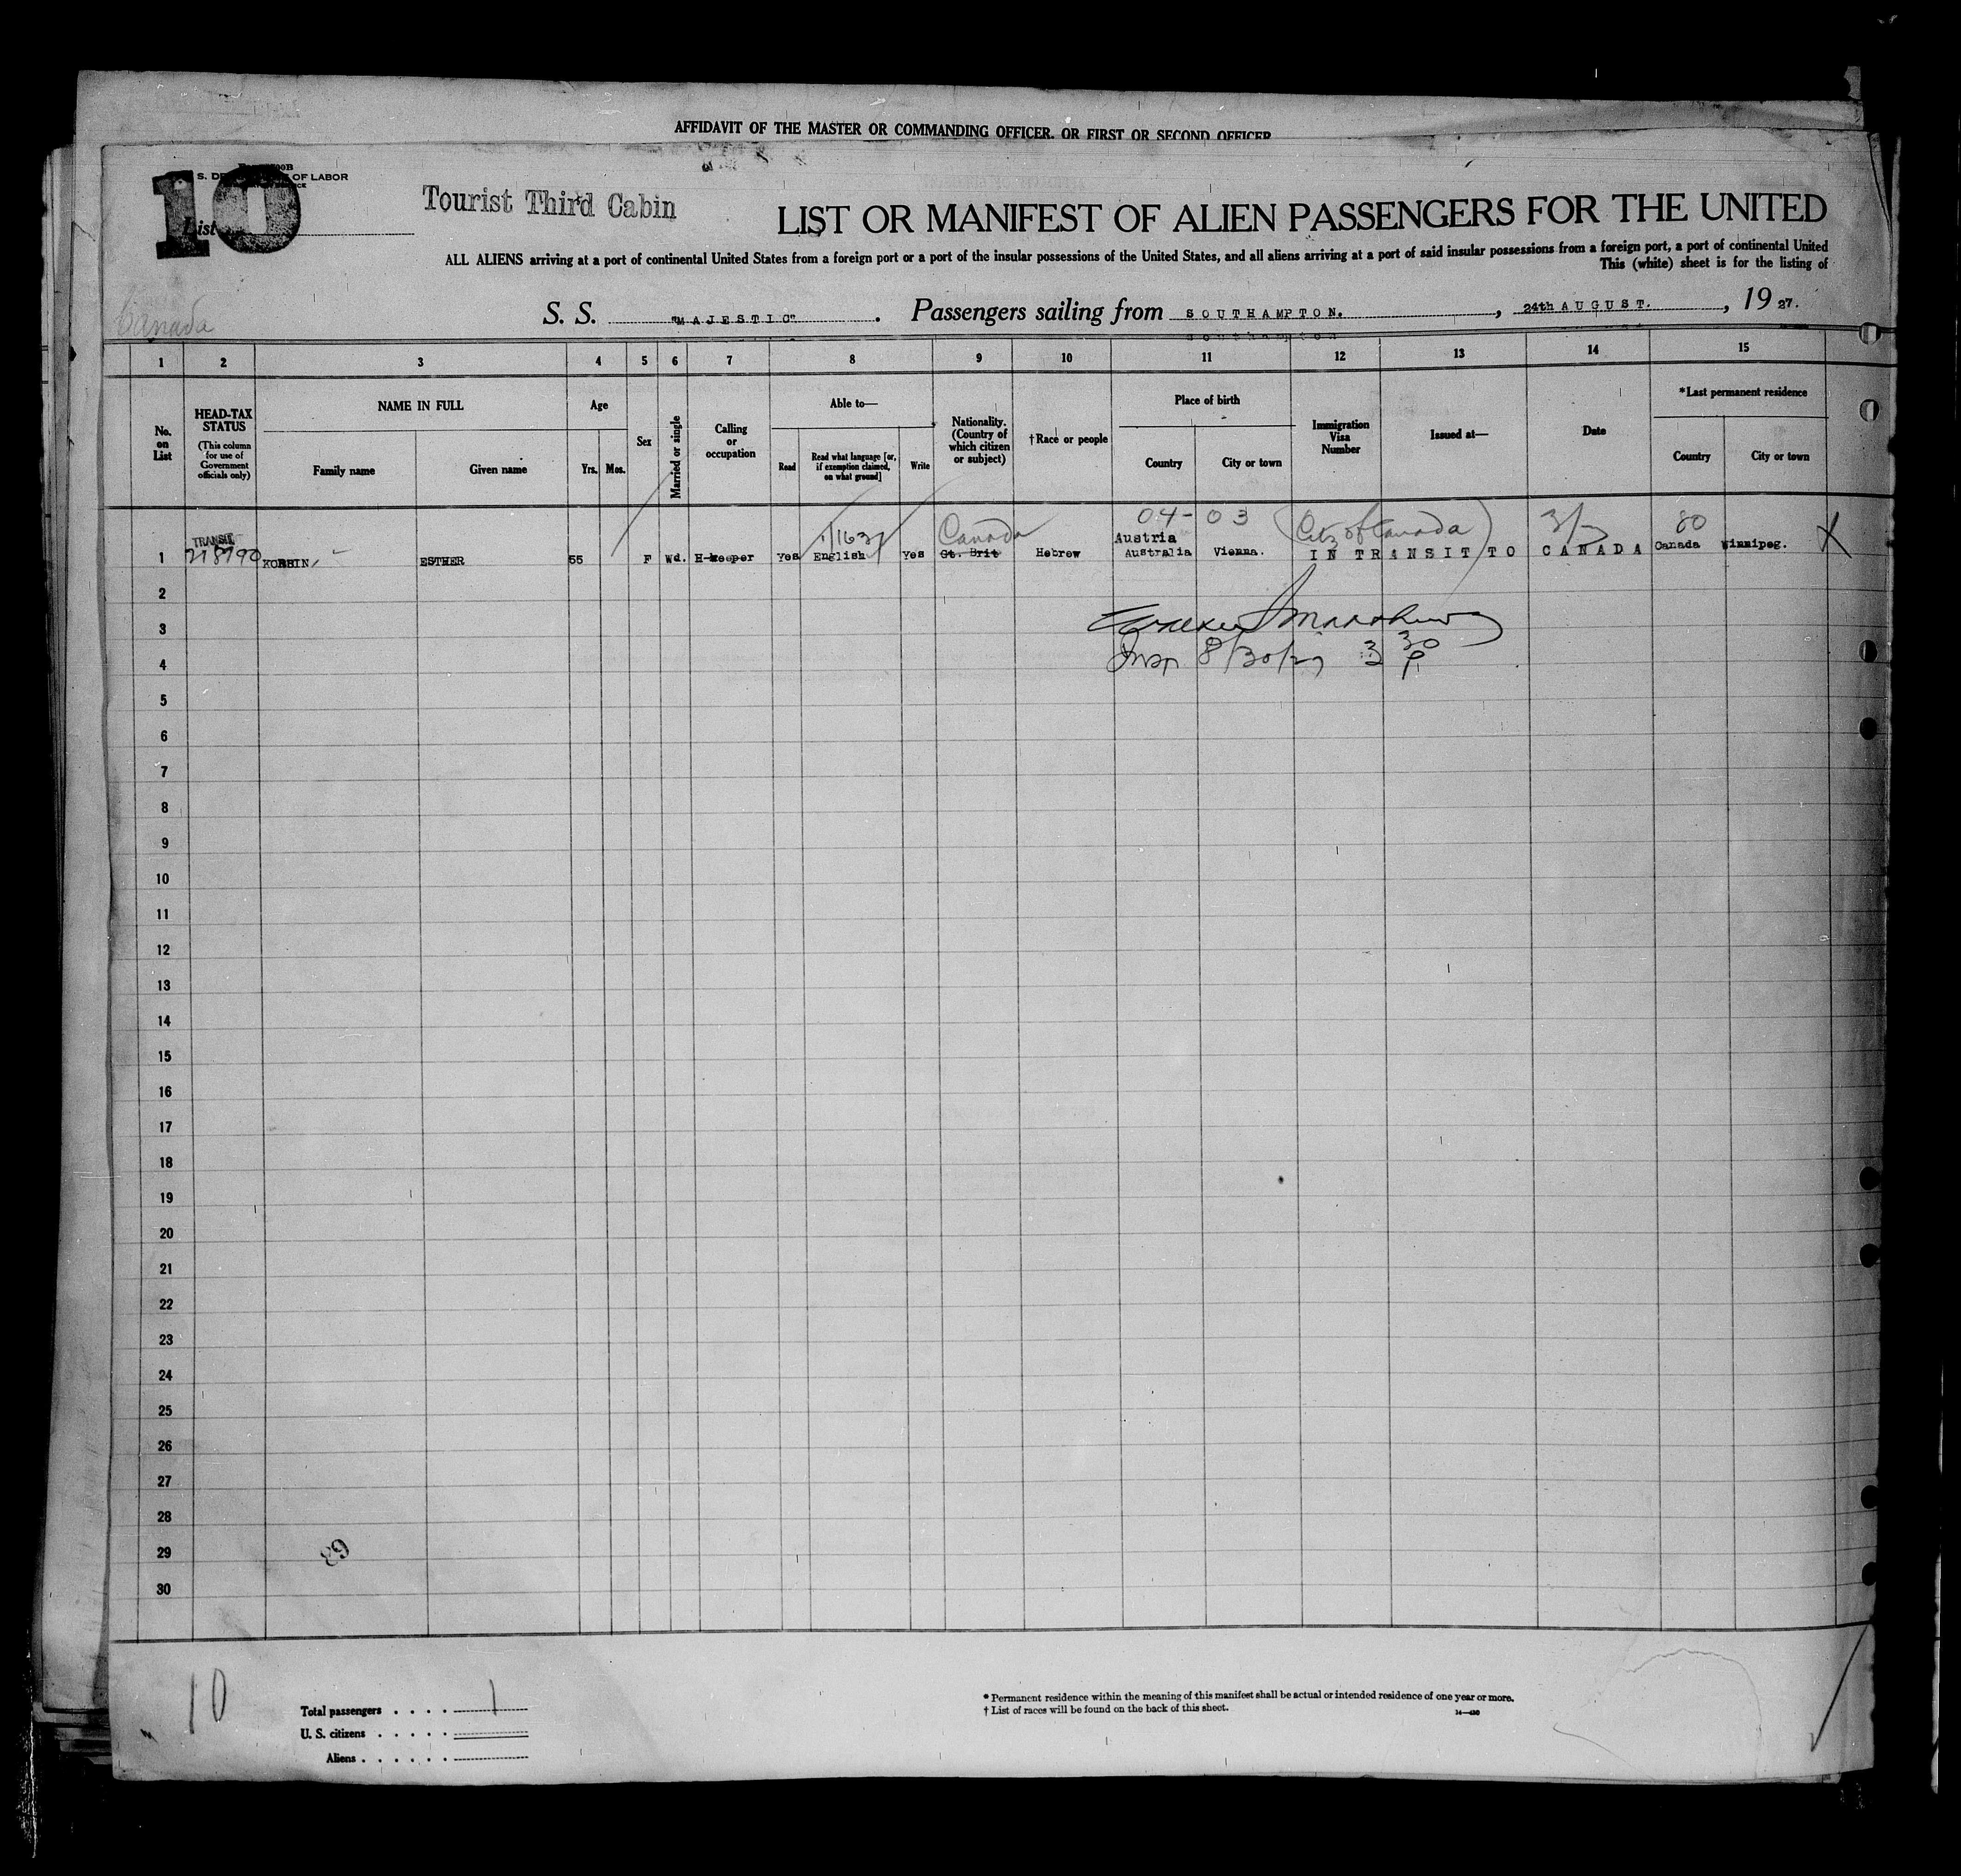 AFFIDAVIT OF THE MASTER OR COMMANDING OFFICER, OR FIRST OR SECOND OFFICER
S. DE OF LABOR
10
List
Tourist Third Cabin
LIST OR MANIFEST OF ALIEN PASSENGERS FOR THE UNITED
ALL ALIENS arriving at a port of continental United States from a foreign port or a port of the insular possessions of the United States, and all aliens arriving at a port of said insular possessions from a foreign port, a port of continental United
This (white) sheet is for the listing of
Canada
S. S. "MAJESTIC". Passengers sailing from SOUTHAMPTON. , 24th AUGUST. , 19 27.
southampton
1 2 3 4 5 6 7 8 9 10 11 12 13 14 15
No. on List
HEAD-TAX STATUS (This column for use of Government officials only)
NAME IN FULL
Family name Given name
Age
Yrs. Mos.
Sex
Married or single
Calling or occupation
Able to—
Read
Read what language [or, if exemption claimed, on what ground]
Write
Nationality. (Country of which citizen or subject)
†Race or people
Place of birth
Country City or town
Immigration Visa Number
Issued at—
Date
*Last permanent residence
Country City or town
04-03
Canada
80
TRANSIT
Austria
1 218790 ESTHER 55 F Wd. H-keeper Yes English Yes Gt. Brit Hebrew Australia Vienna. IN TRANSIT TO CANADA Canada Winnipeg. X
2
3
4 Insp 8/30/27 3 30 P
5
6
7
8
9
10
11
12
13
14
15
16
17
18
19
20
21
22
23
24
25
26
27
28
29
30
89
10
Total passengers . . . . 1
U. S. citizens . . . . .
Aliens . . . . . .
* Permanent residence within the meaning of this manifest shall be actual or intended residence of one year or more.
† List of races will be found on the back of this sheet.